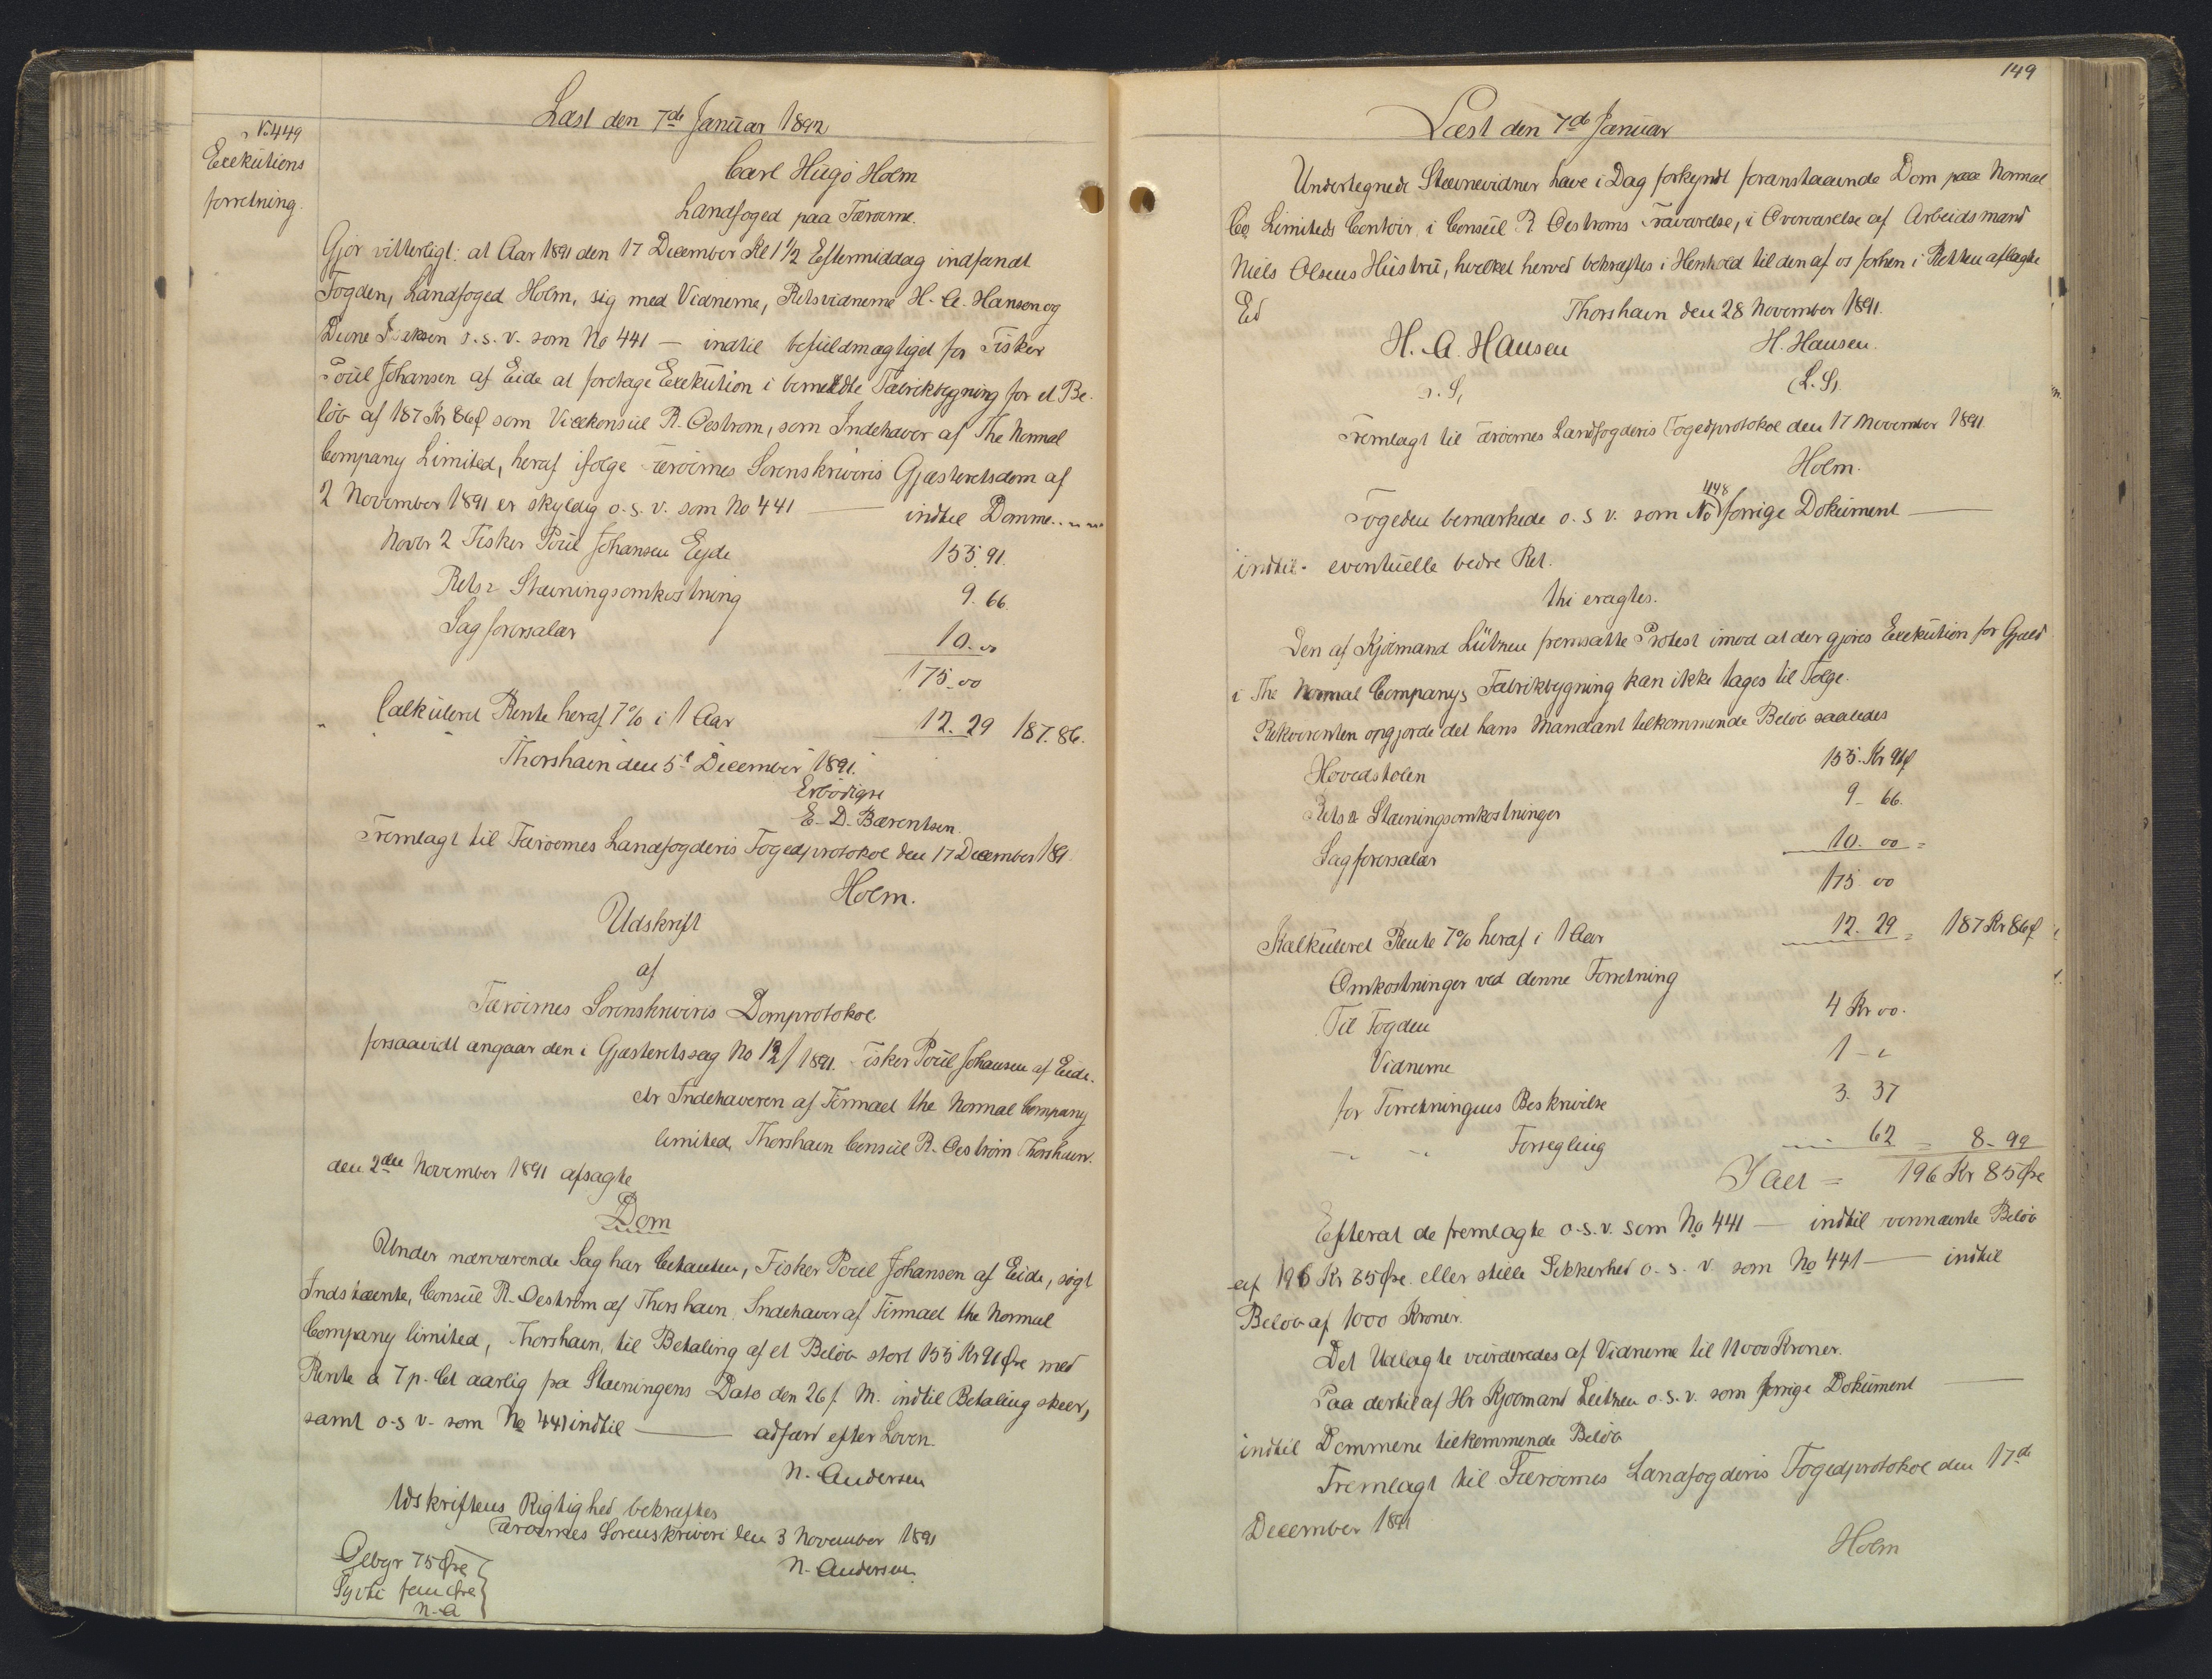 Læst den 7de Januar 1892
No 449
Exekutions
forretning.
Carl Hugo Holm
Landfoged paa Færøerne.
Gjør vitterligt: at Aar 1891 den 17 December Kl 1 1/2 Eftermiddag indfandt
Fogden, Landfoged Holm, sig med Vidnerne, Retsvidnerne H. A. Hansen og
Isaksen o.s.v. som No 441 — indtil befuldmægtiget for Fisker
Poul Johansen af Eide at foretage Exekution i bemeldte Fabrikbygning for et Be-
løb af 187 Kr 86 ø som Vicekonsul R. Oestrom, som Indehaver af The Normal
Company Limited, heraf ifølge Færøernes Sorenskriveris Gjæsteretsdom af
2 November 1891 er skyldig o.s.v. som No 441 — indtil Domme..
Novbr 2 Fisker Poul Johansen Ejde 155.91.
Rets & Stævningsomkostning 9.66.
Sagførersalær 10.00
175.00
Calkuleret Rente heraf 7% i 1 Aar 12.29 187.86.
Thorshavn den 5t December 1891.
Erbødigst
E. D. Bærentsen.
Fremlagt til Færøernes Landfogderis Fogedprotokol den 17 December 1891.
Holm.
Udskrift
af
Færøernes Sorenskriveris Domprotokol
forsaavidt angaar den i Gjæsteretssag No 12/1891. Fisker Poul Johansen af Eide.
ctr Indehaveren af Firmaet the Normal Company
limited, Thorshavn Consul R. Oestrøm Thorshavn.
den 2den November 1891 afsagte
Dom
Under nærværende Sag har Citanten, Fisker Poul Johansen af Eide, søgt
Indstævnte, Consul R. Oestrøm af Thorshavn, Indehaver af Firmaet the Normal
Company limited, Thorshavn, til Betaling af et Beløb stort 155 Kr 91 Øre med
Rente a 7 p. Ct aarlig fra Stævningens Dato den 26 f. M. indtil Betaling skeer,
samt o.s v. som No 441 indtil — adfærd efter Loven.
N. Andersen
Udskriftens Rigtighed bekræftes
Færøernes Sorenskriveri den 3 November 1891
N. Andersen.
Gebyr 75 Øre
Sytti fem Øre
N. A
149
Læst den 7de Januar
Undertegnede Stævnevidner have i Dag forkyndt foranstaaende Dom paa Normal
Co Limiteds Contoir, i Consul R. Oestroms Fraværelse, i Overværelse af Arbeidsmand
Niels Olsens Hustru, hvilket herved bekræftes i Henhold til den af os forhen i Retten aflagte
Ed
Thorshavn den 28 November 1891.
H. A. Hansen H. Hansen.
L. S, L. S,
Fremlagt til Færøernes Landfogderis Fogedprotokol den 17 November 1891
Holm.
448
Fogden bemærkede o. s v. som No forrige Dokument —
indtil. eventuelle bedre Ret.
thi eragtes.
Den af Kjøbmand Lützen fremsatte Protest imod at der gjøres Exekution for Gjæld
i The Normal Companys Fabrikbygning kan ikke tages til Følge.
Rekvirenten opgjorde det hans Mandant tilkommende Beløb saaledes
Hovedstolen 155. Kr 91 ø
Rets & Stævningsomkostninger 9 - 66.
Sagførersalær 10. 00 =
175 00
Kalkuleret Rente 7% heraf i 1 Aar 12. 29 = 187 Kr 86 ø
Omkostninger ved denne Forretning
Til Fogden 4 Kr 00.
Vidnerne 1 - "
for Forretningens Beskrivelse 3. 37
" " Forsegling 62 = 8 - 99
I alt = 196 Kr 85 Øre
Efterat de fremlagte o.s.v. som No 441 — indtil Beløb
af 196 Kr 85 Øre eller stille Sikkerhed o. s. v. som No 441 — indtil
Beløb af 1000 Kroner.
Det Udlagte vurderedes af Vidnerne til 11000 Kroner.
Paa dertil af Hr Kjøbmand Lützen o.s.v. som forrige Dokument —
indtil Dommene tilkommende Beløb
Fremlagt til Færøernes Landfogderis Fogedprotokol den 17de
December 1891
Holm